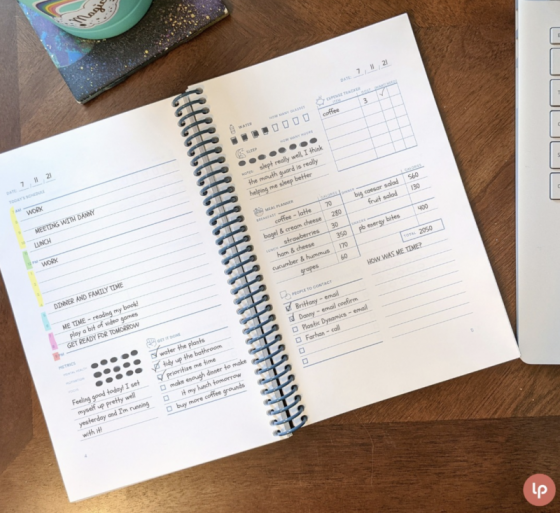 Magic
DATE 7 . 11 . 21
WORK
MEETING WITH DANNY
LUNCH
WORK
DINNER AND FAMILY TIME
ME TIME - reading my book!
play a bit of video games
GET READY FOR TOMORROW
Feeling good today! I set
myself up pretty well
yesterday and I'm running
with it!
GET IT DONE
water the plants
tidy up the bathroom
prioritize me time
make enough dinner to make
it my lunch tomorrow
buy more coffee grounds
DATE 7 . 11 . 21
WATER
SLEEP
slept really well, I think
the mouth guard is really
helping me sleep better
EXPENSE TRACKER
coffee 3 ✓
MEAL PLANNER
coffee - latte 70
bagel & cream cheese 280
strawberries 30
ham & cheese 350
cucumber & hummus 170
grapes 60
big caesar salad 560
fruit salad 130
pb energy bites 400
TOTAL 2050
PEOPLE TO CONTACT
Brittany - email
Danny - email confirm
Plastic Dynamics - email
Fortos - call
HOW WAS ME TIME?
lp